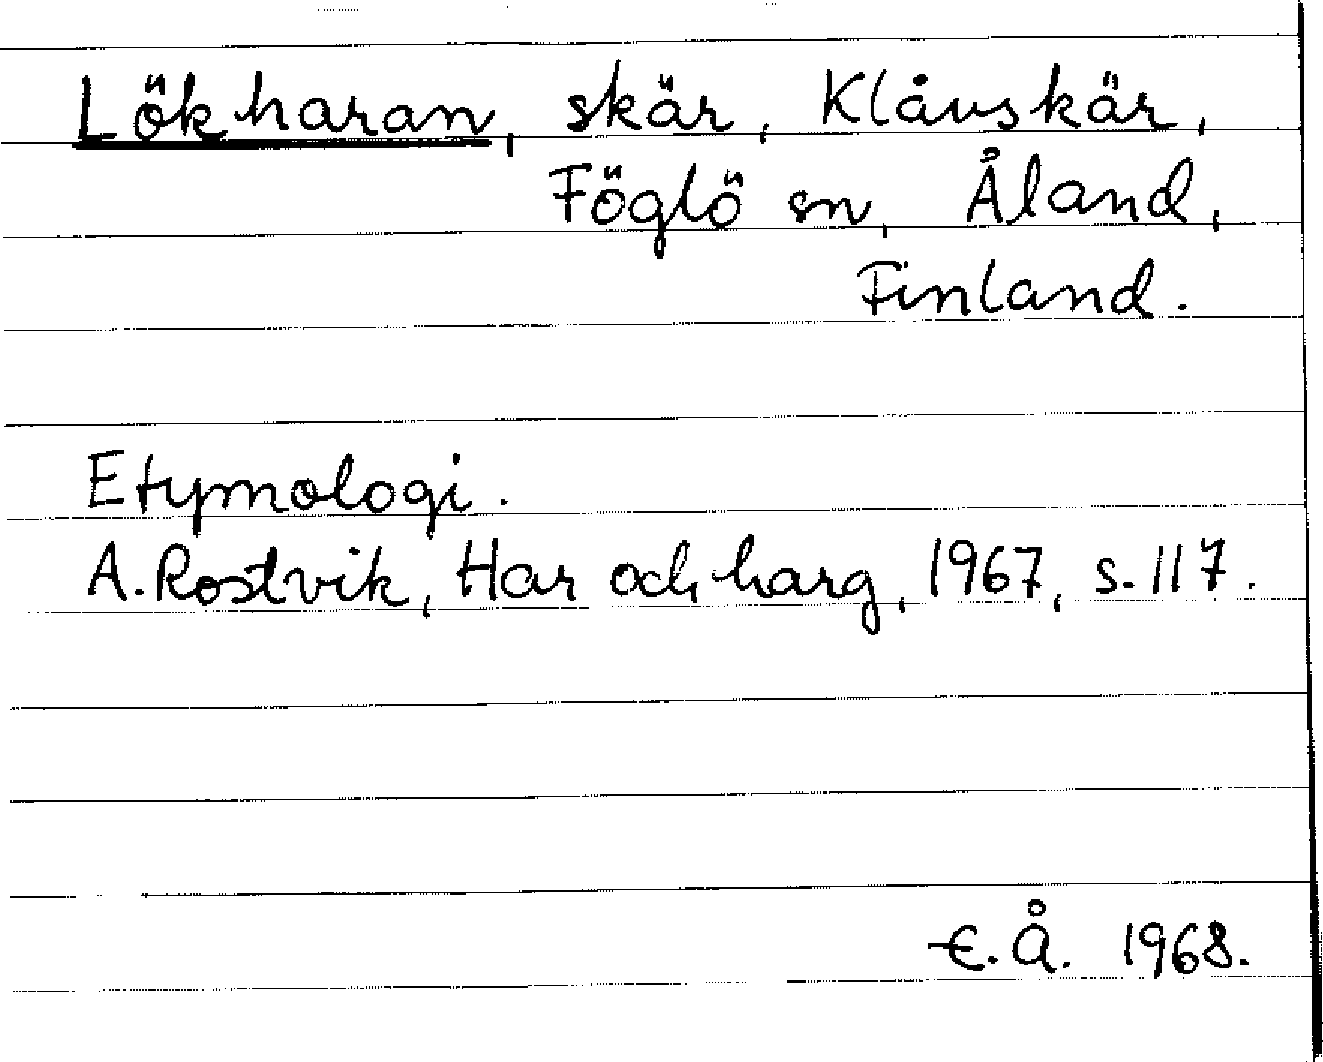 Lökharan, skär, Klåvskär,
Föglö sn, Åland,
Finland.
Etymologi.
A. Rostvik, Har och harg, 1967, s. 117.
E.Å. 1968.